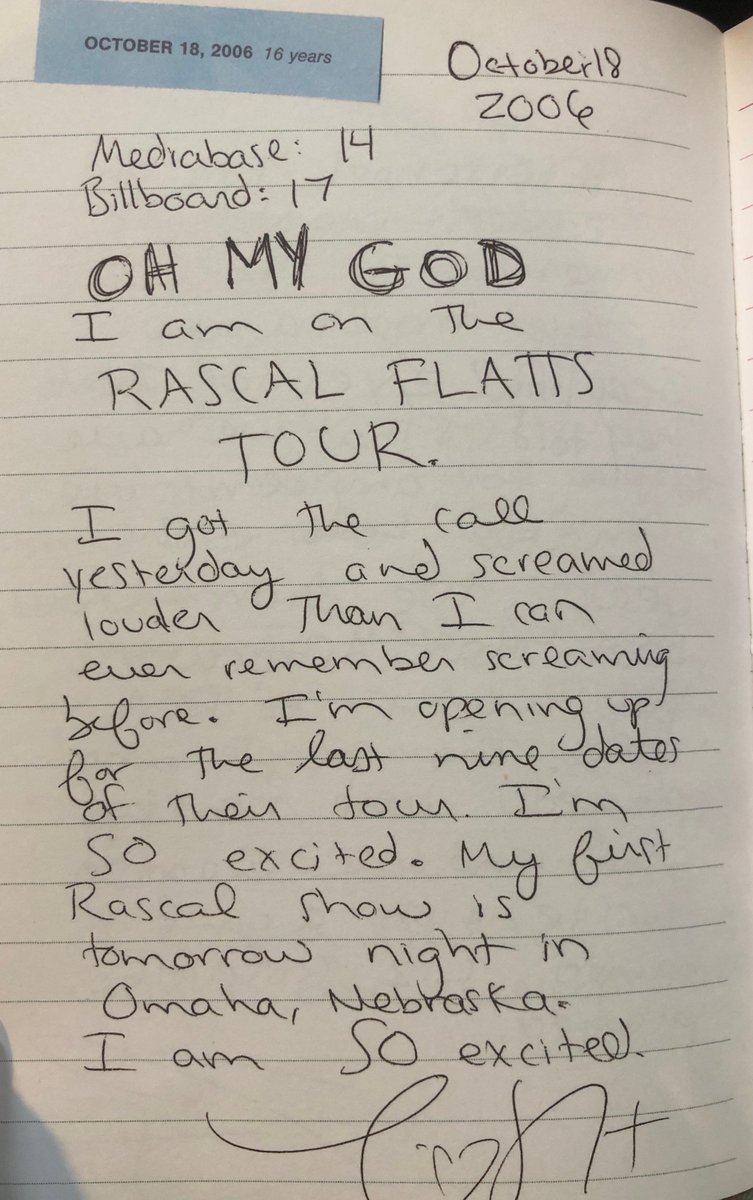 OCTOBER 18, 2006 16 years
October 18
2006
Mediabase: 14
Billboard: 17
OH MY GOD
I am on the
RASCAL FLATTS
TOUR.
I got the call
yesterday and screamed
louder than I can
ever remember screaming
before. I'm opening up
for the last nine dates
of their tour. I'm
SO excited. My first
Rascal show is
tomorrow night in
Omaha, Nebraska.
I am SO excited.